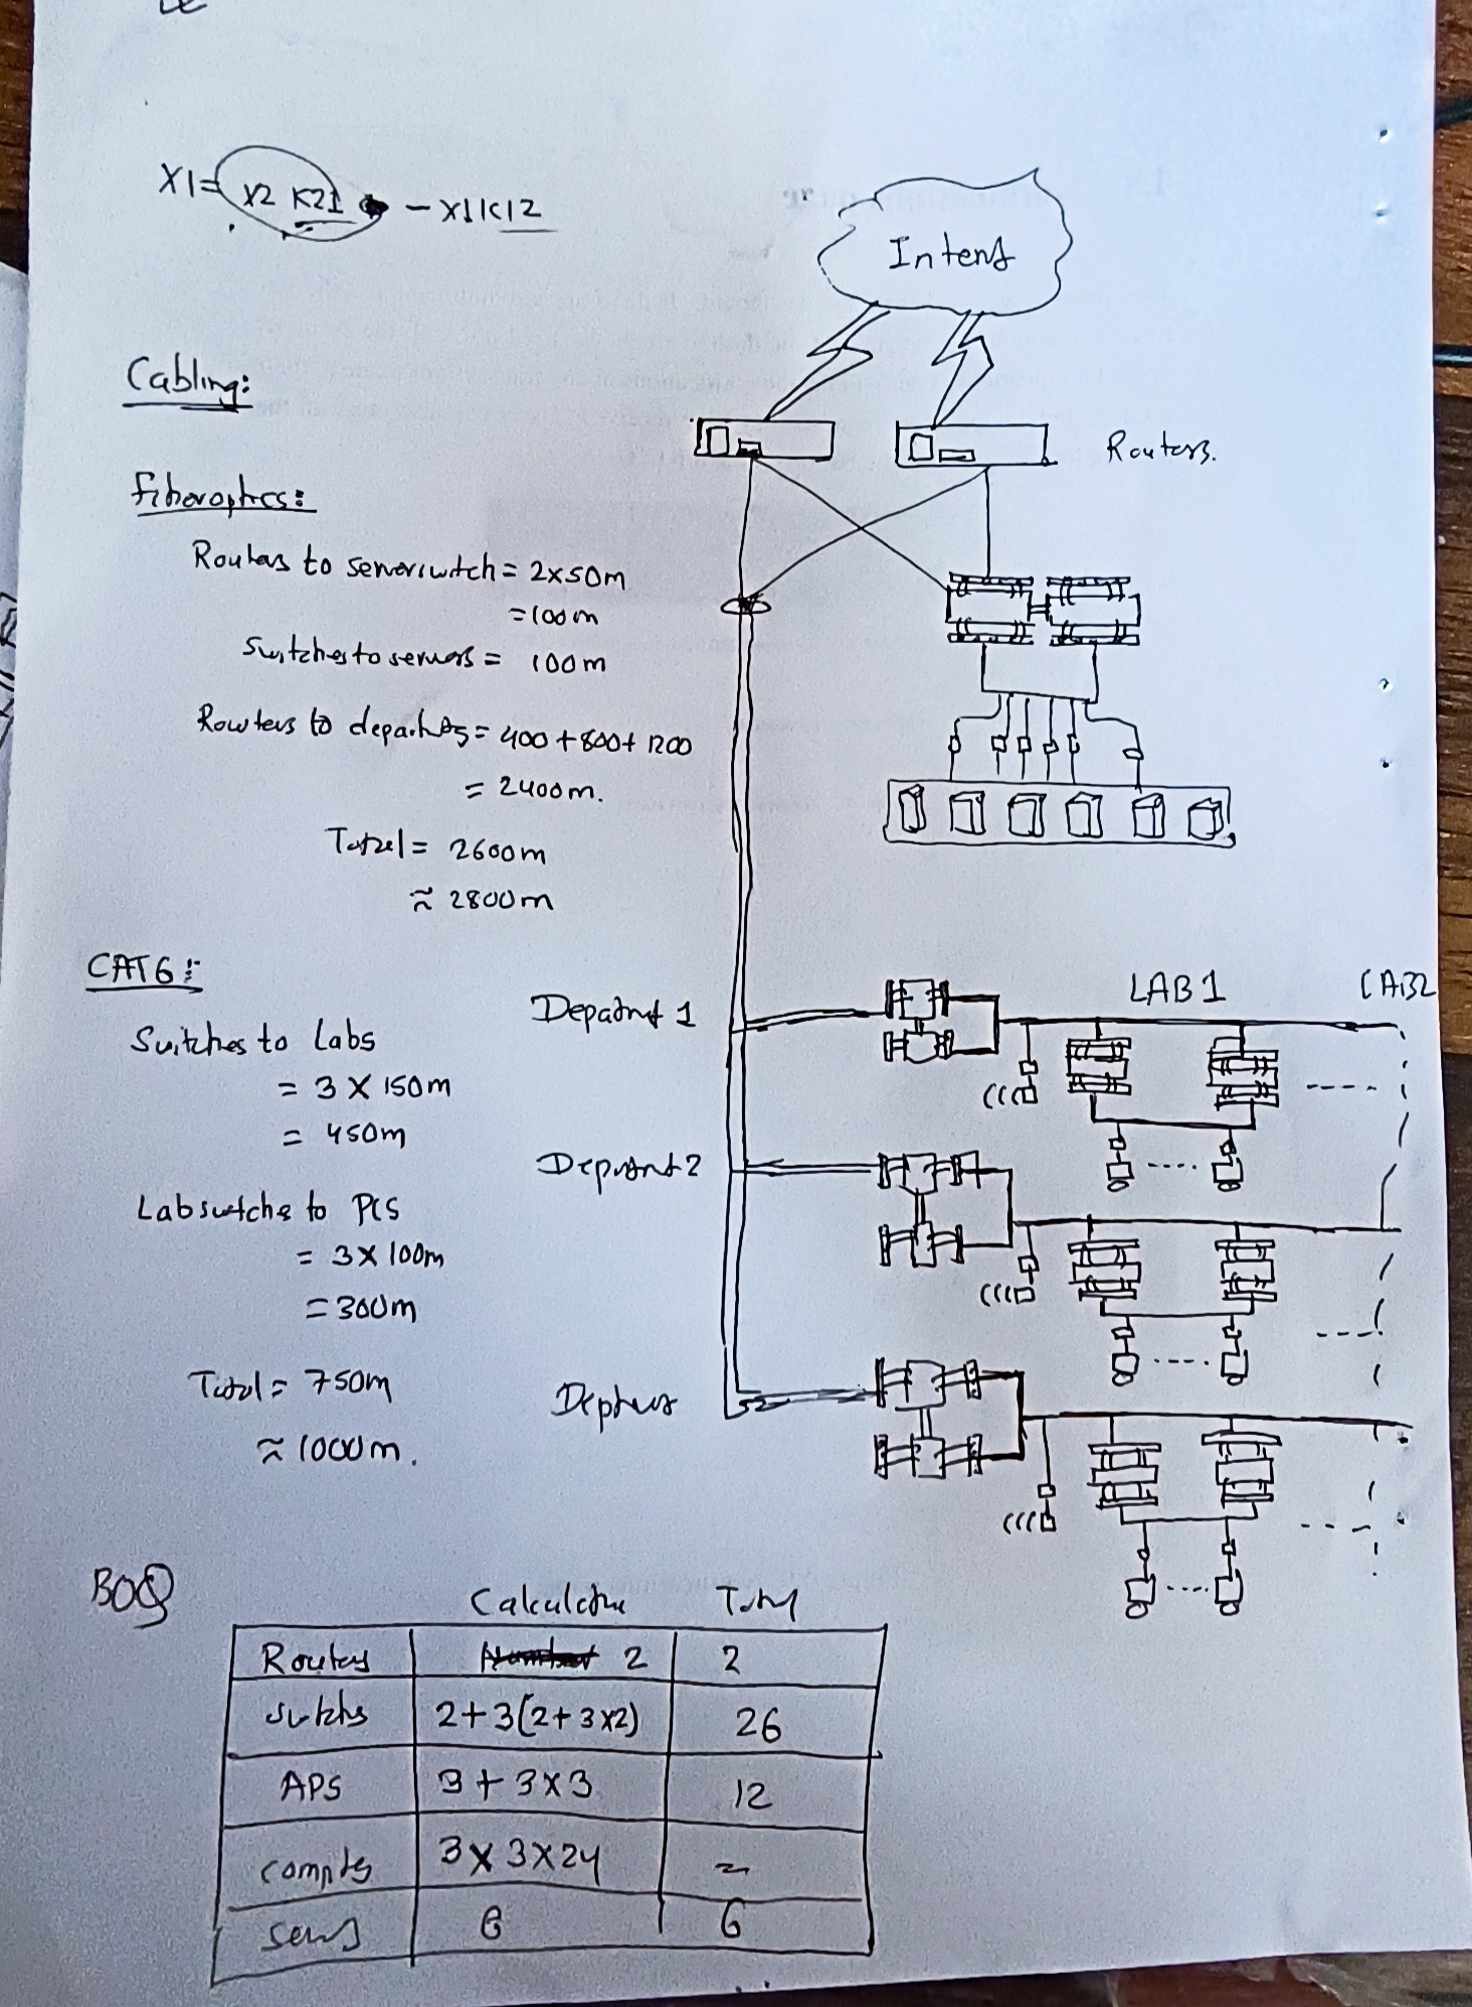 X1= X2 K21 - X1K12
Intent
Cabling:
Routers.
fiberoptics:
Routers to serverswitch = 2x50m
=100m
Switches to servers = 100m
Routers to departs = 400 + 800 + 1200
= 2400m.
Total = 2600m
≈ 2800m
CAT6:
LAB1
LAB2
Depatmt 1
Switches to Labs
= 3 X 150m
= 450m
Depatmt 2
Labswitches to PCS
= 3X100m
= 300m
Total = 750m
≈ 1000m.
BOQ
Routers 2 2
2+3(2+3x2) 26
APS 3 + 3X3 12
3 X 3X24
6 6